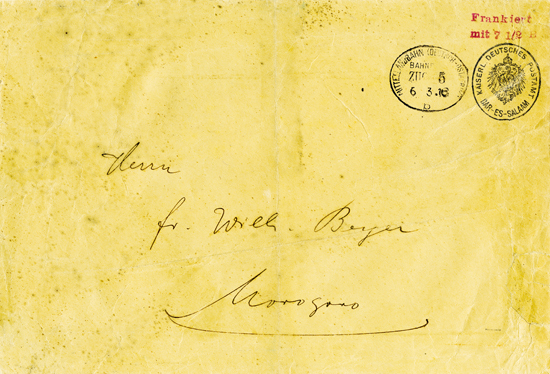 Frankiert
mit 7 1/2 H
MITTELLANDBAHN (DEUTSCH-OSTAFRIKA)
BAHNPOST
ZUG 5
6 3.16
b
KAISERL. DEUTSCHES POSTAMT
DAR-ES-SALAAM
Herrn
fr. Wilh. Beyer
Morogoro